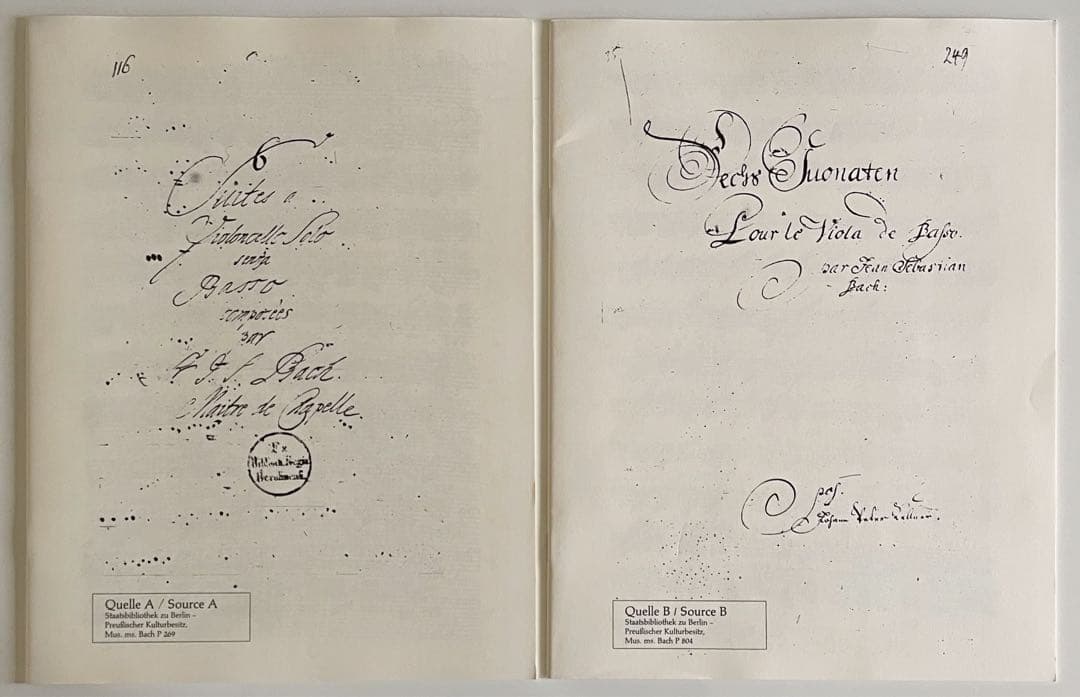 116
6
Suites a
Violoncello Solo
senza
Basso
composées
par
J. S. Bach.
Maitre de Capelle.
Ex
Biblioth. Regia
Berolinensi
Quelle A / Source A
Staatsbibliothek zu Berlin –
Preußischer Kulturbesitz,
Mus. ms. Bach P 269
249
Sechs Suonaten
Pour le Viola de Basso.
par Jean Sebastian
Bach:
pos.
Johann Peter Kellner.
Quelle B / Source B
Staatsbibliothek zu Berlin –
Preußischer Kulturbesitz,
Mus. ms. Bach P 804